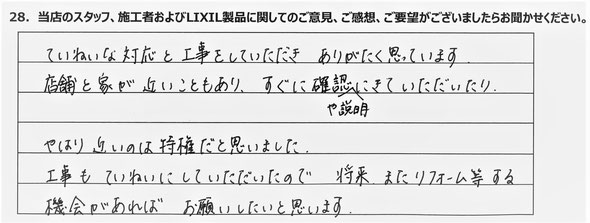 28. 当店のスタッフ、施工者およびLIXIL製品に関してのご意見、ご感想、ご要望がございましたらお聞かせください。
ていねいな対応と工事をしていただき ありがたく思っています.
店舗と家が近いこともあり、すぐに確認にきていただいたり.
や説明
やはり近いのは特権だと思いました.
工事もていねいにしていただいたので 将来 またリフォーム等する
機会があれば お願いしたいと思います.